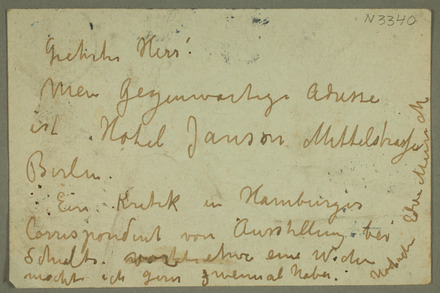 N3340
Geehrter Herr!
Mein Gegenwartige Adresse
ist Hotel Janson Mittelstrasse
Berlin.
Ein Kritik in Hamburger
Correspondent von Ausstellung bei
Schulte. etwa eine Woche
möchte ich gern zweimal haben.
Edvard Munch